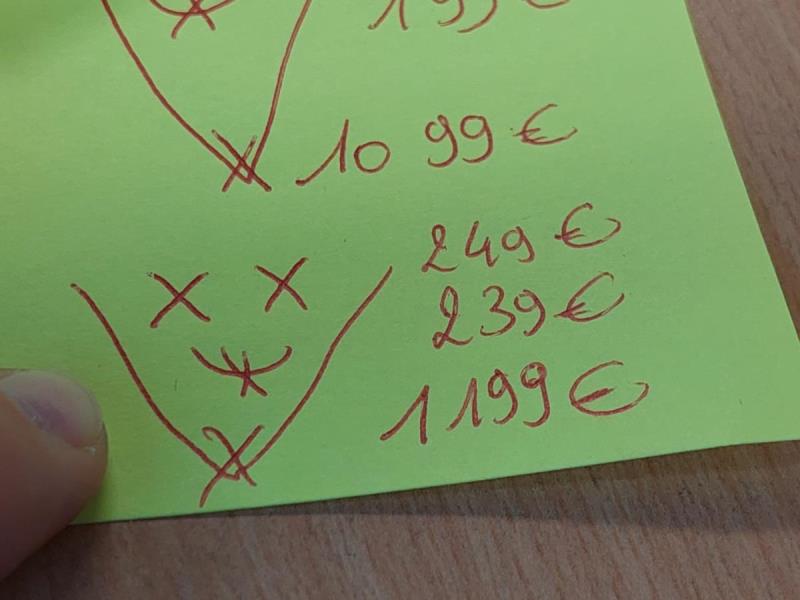 10 99 €
249 €
239 €
1 199 €